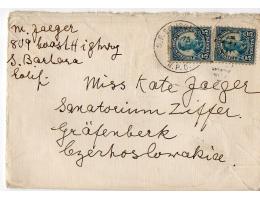 M. Jaeger
809 Coast Highway
S. Barbara
Calif.
Miss Kate Jaeger
Sanatorium Ziffer
Gräfenberk
Czechoslowakia